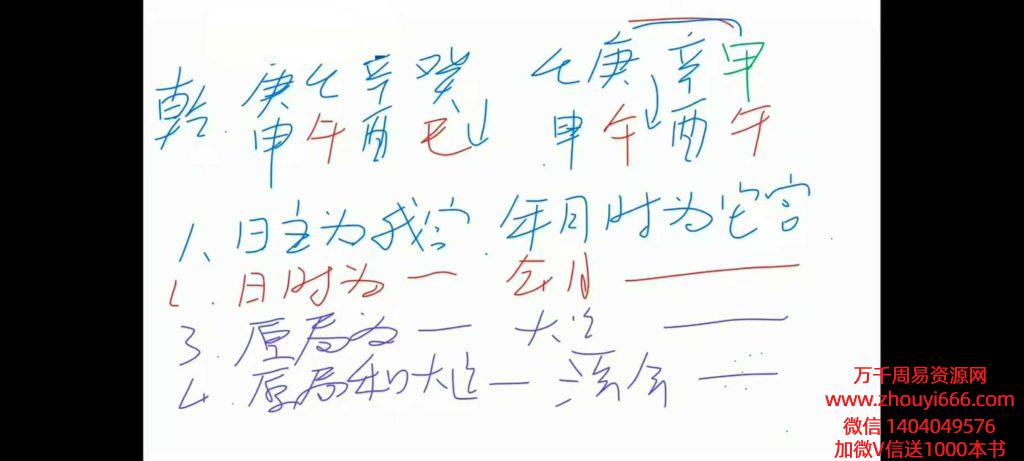 乾 庚 壬 辛 癸 壬 庚 辛 甲
申 午 酉 巳 申 午 酉 午
1、日主为我宫 年月时为它宫
2.日时为一 年月一
3.原局为一 大运一
4.原局和大运一 流年一
万千周易资源网
www.zhouyi666.com
微信 1404049576
加微V信送1000本书